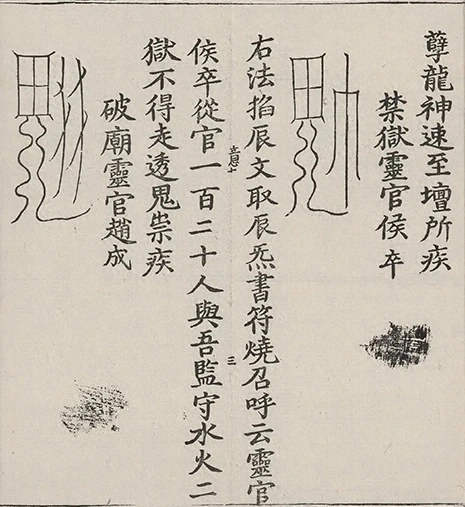 孽龍神速至壇所疾
禁獄靈官侯卒
右法掐辰文取辰炁書符燒召呼云靈官
三
侯卒從官一百二十人與吾監守水火二
獄不得走透鬼祟疾
破廟靈官趙成